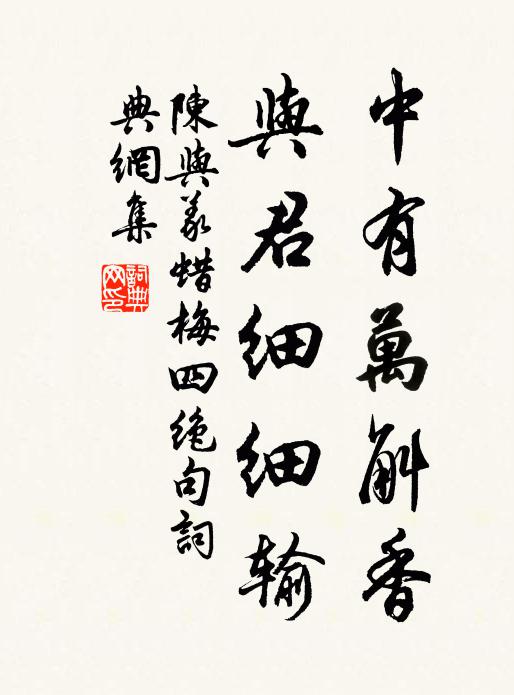 中有萬斛香
與君細細輸
陳與義蜡梅四絶句詞
典網集
詞典網印